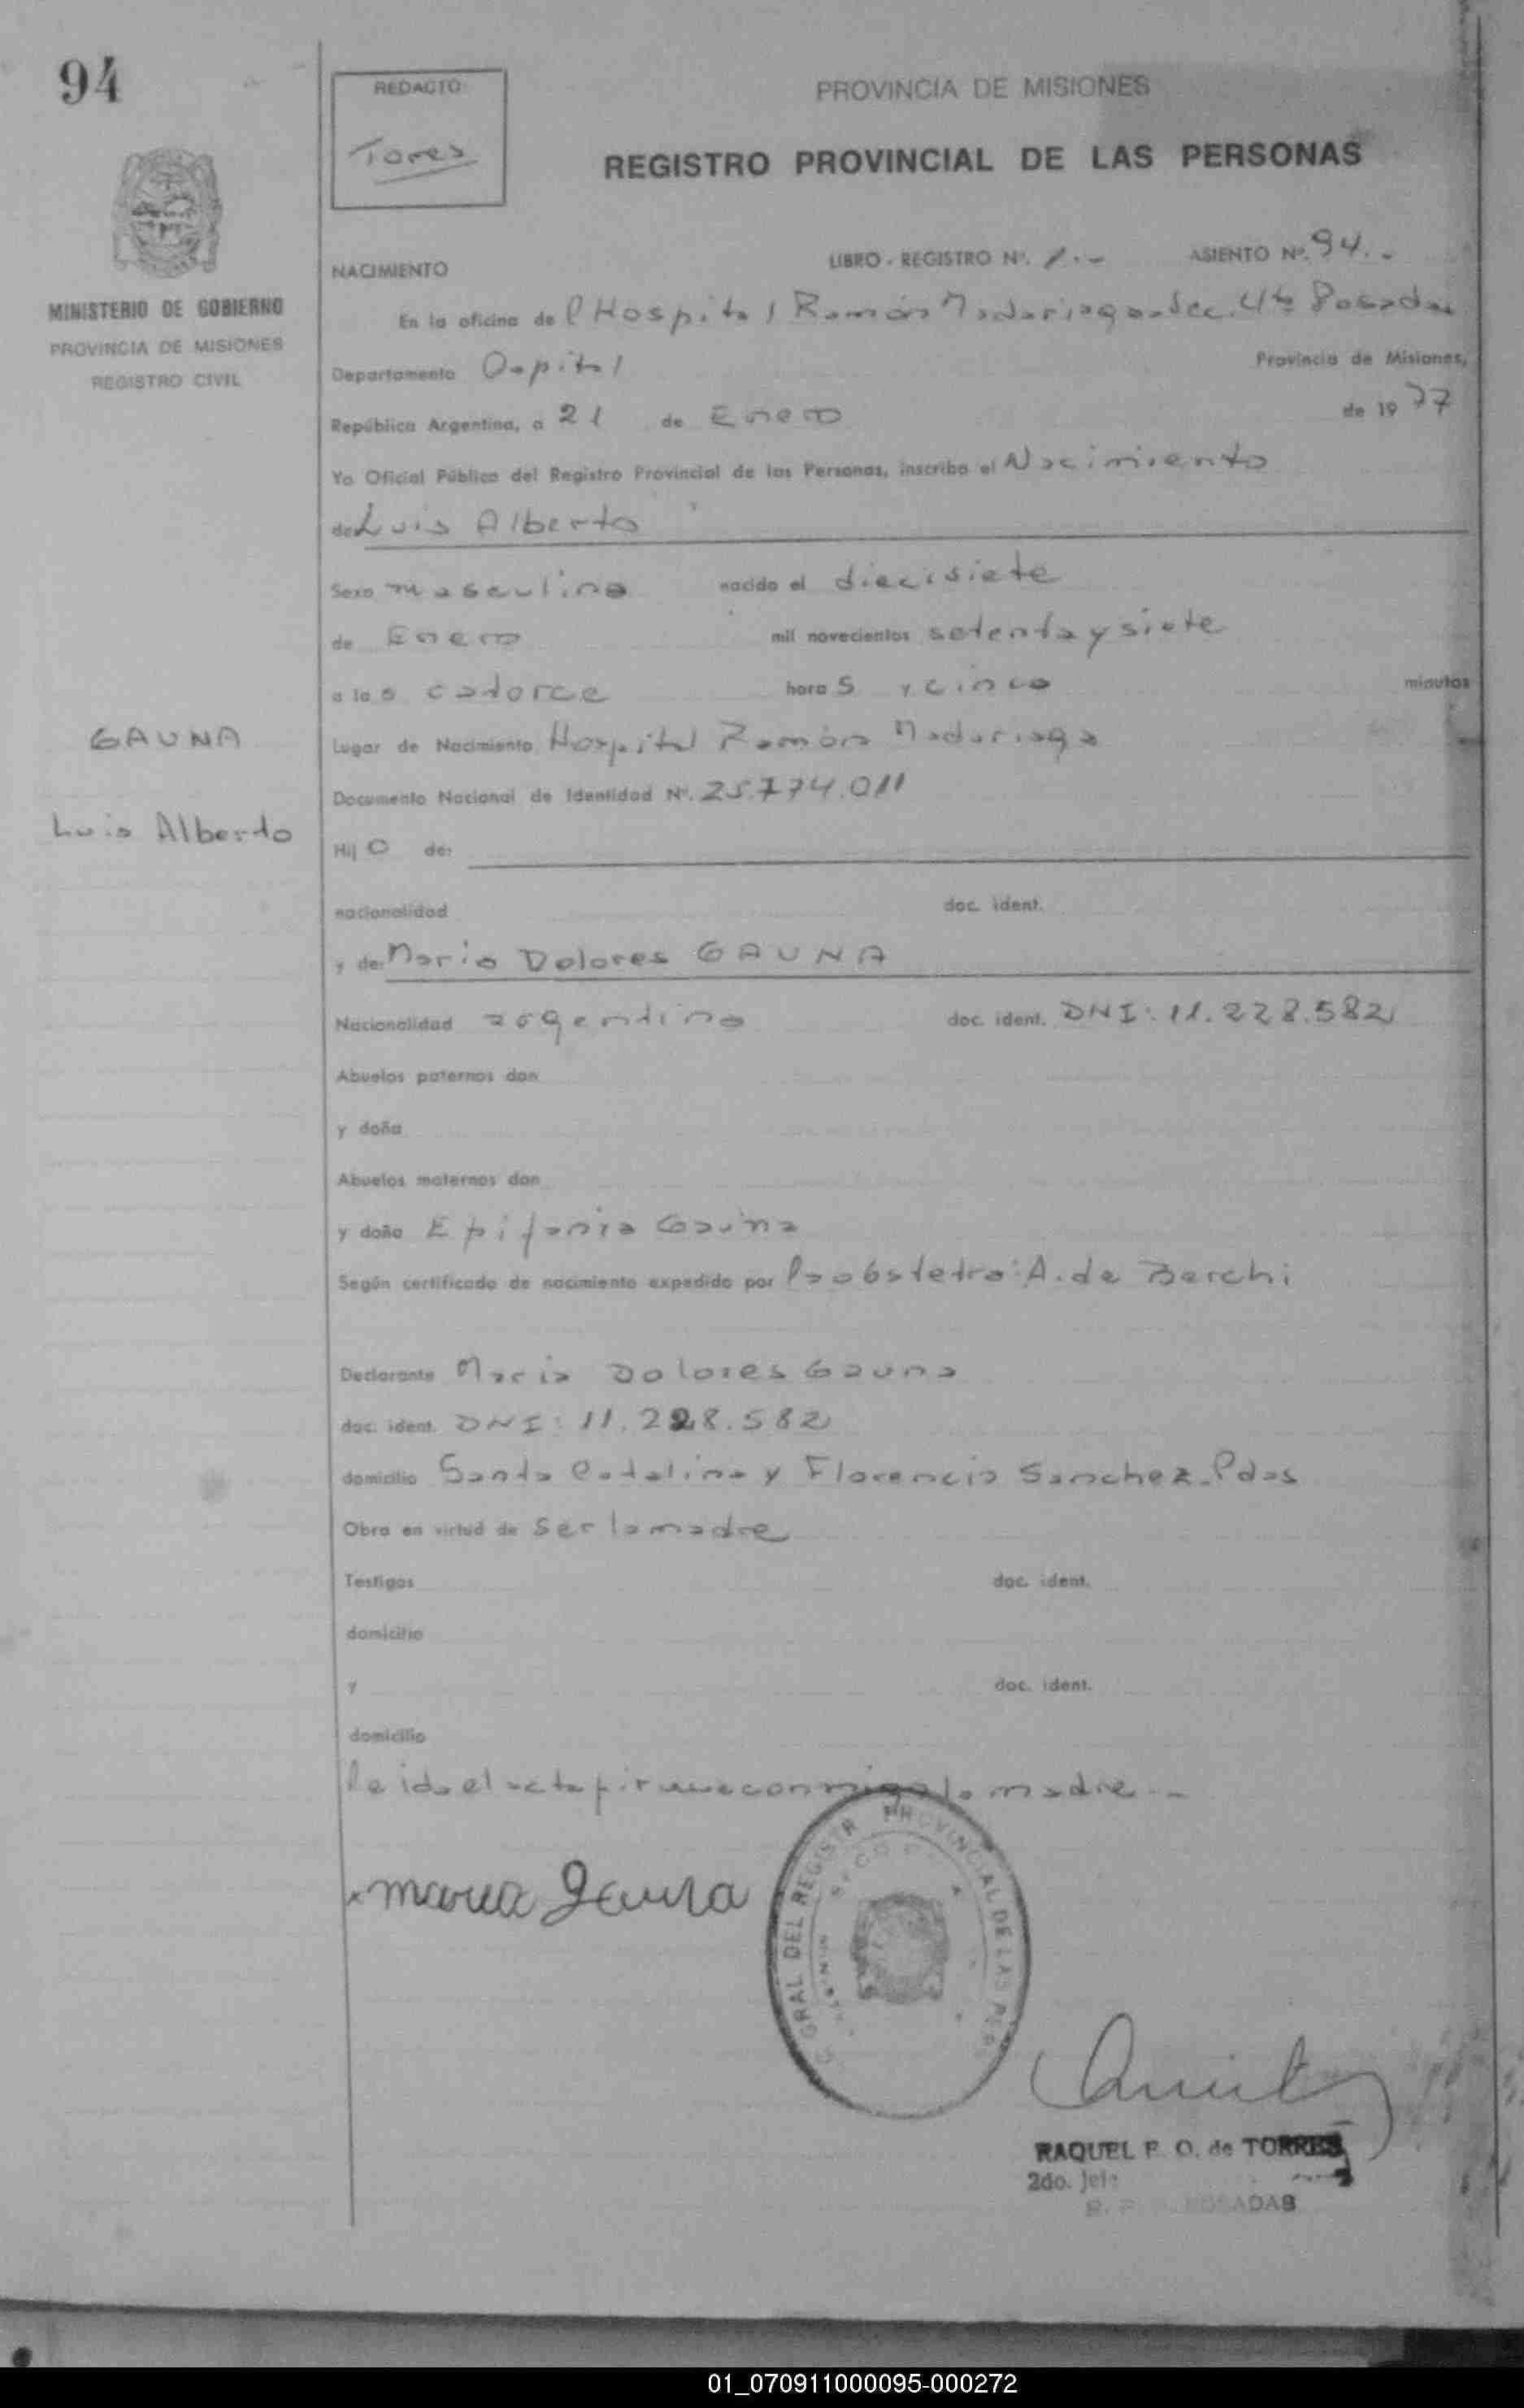 94
REDACTO:
Torres
PROVINCIA DE MISIONES
REGISTRO PROVINCIAL DE LAS PERSONAS
MINISTERIO DE GOBIERNO
PROVINCIA DE MISIONES
REGISTRO CIVIL
NACIMIENTO
LIBRO - REGISTRO Nº. 1.- ASIENTO Nº. 94.-
En la oficina de l Hospital Ramón Madariaga-Sec. 4ta Posadas
Departamento Capital Provincia de Misiones,
República Argentina, a 21 de Enero de 1977
Yo Oficial Público del Registro Provincial de las Personas, inscribo el Nacimiento
de Luis Alberto
Sexo masculino nacido el diecisiete
de Enero mil novecientos setenta y siete
a las catorce horas y cinco minutos
GAUNA
Lugar de Nacimiento Hospital Ramón Madariaga
Documento Nacional de Identidad Nº. 25.774.011
Luis Alberto
Hijo de:
nacionalidad doc. ident.
y de: Maria Dolores GAUNA
Nacionalidad argentina doc. ident. DNI: 11.228.582
Abuelos paternos don
y doña
Abuelos maternos don
y doña Epifania Gauna
Según certificado de nacimiento expedido por la obstetra: A. de Berchi
Declarante Maria Dolores Gauna
doc. ident. DNI: 11.228.582
domicilio Santa Catalina y Florencio Sanchez-Pdas
Obra en virtud de ser la madre
Testigos doc. ident.
domicilio
y doc. ident.
domicilio
leida el acta firma conmigo la madre.-
x maria Gauna
GRAL DEL REGISTR PROVINCIAL DE LAS PER
RAQUEL F. O. de TORRES
2do. Jefe
POSADAS
01_070911000095-000272